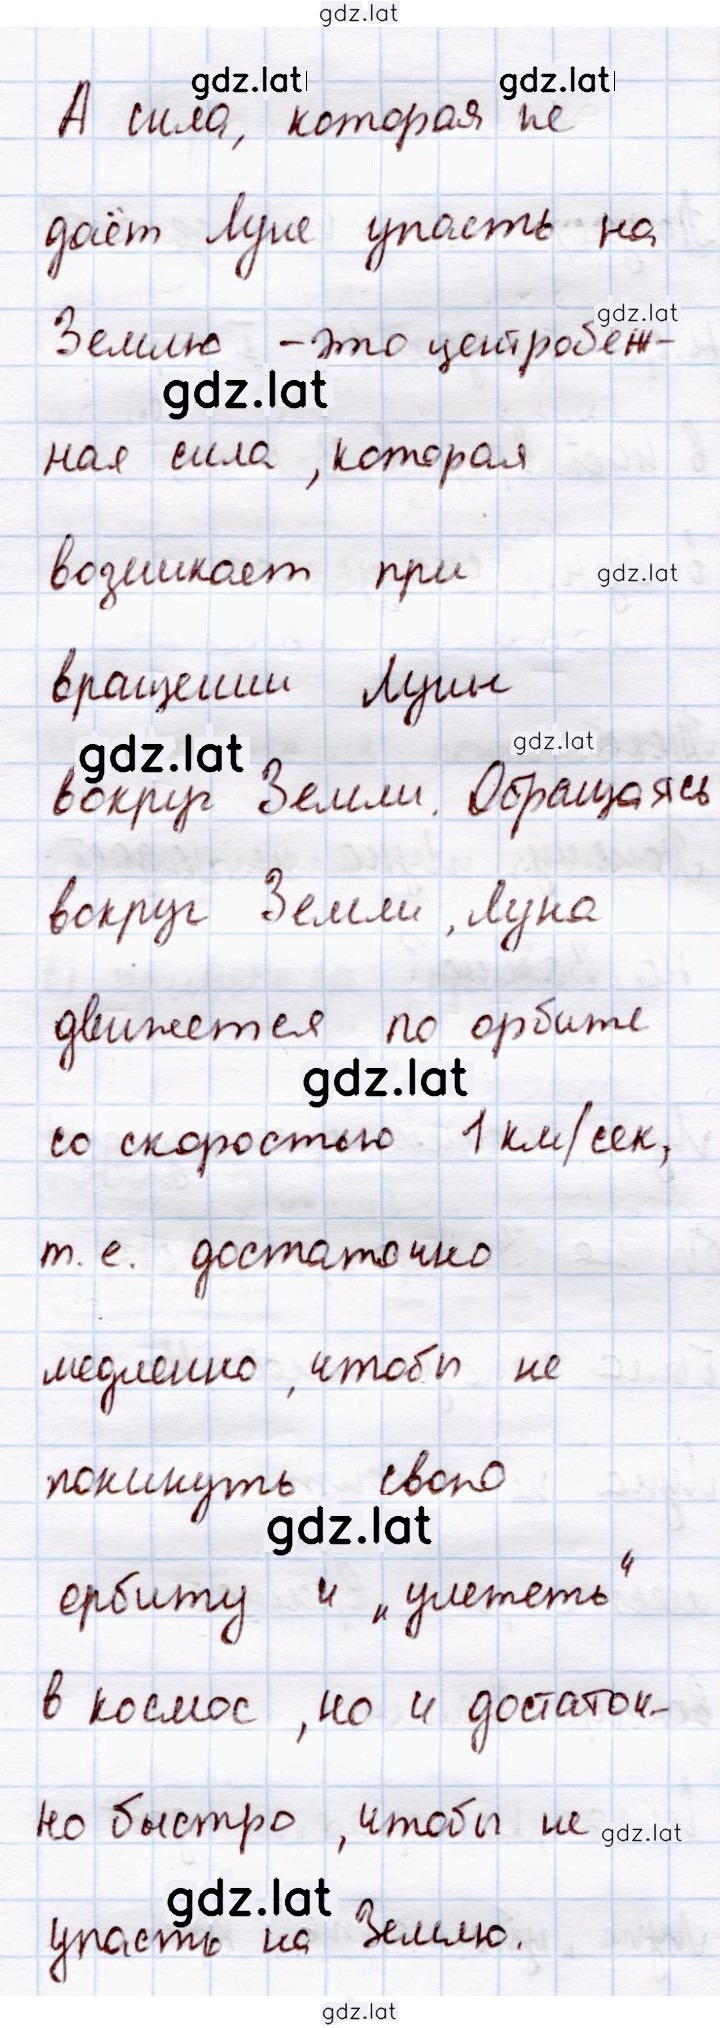 gdz.lat
gdz.lat gdz.lat
А сила, которая не
даёт Луне упасть на
gdz.lat
Землю - это центробеж-
gdz.lat
ная сила, которая
возникает при
gdz.lat
вращении Луны
gdz.lat
gdz.lat
вокруг Земли. Обращаясь
вокруг Земли, Луна
движется по орбите
gdz.lat
со скоростью 1 км/сек,
т.е. достаточно
медленно, чтобы не
покинуть свою
gdz.lat
орбиту и „улететь“
в космос, но и достаточ-
но быстро, чтобы не
gdz.lat
gdz.lat
упасть на Землю.
gdz.lat